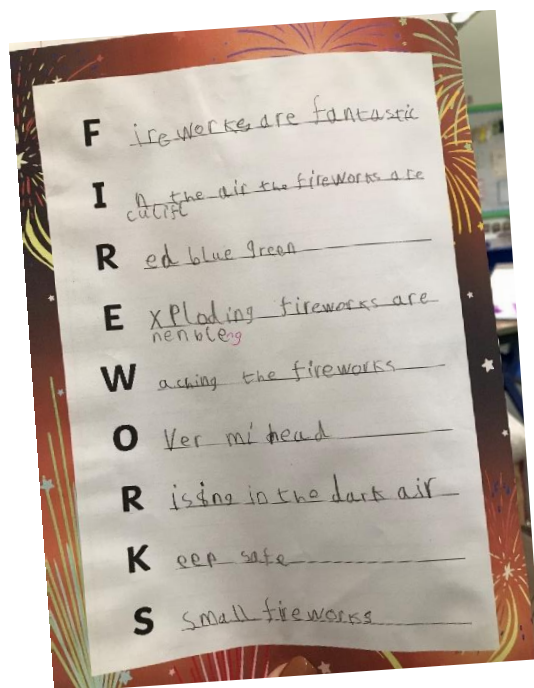 F ireworks are fantastic
I n the air the fireworks are
culifl
R ed blue green
E xploding fireworks are
nenbleng
W aching the fireworks
O ver mi head
R ising in the dark air
K eep safe
S small fireworks